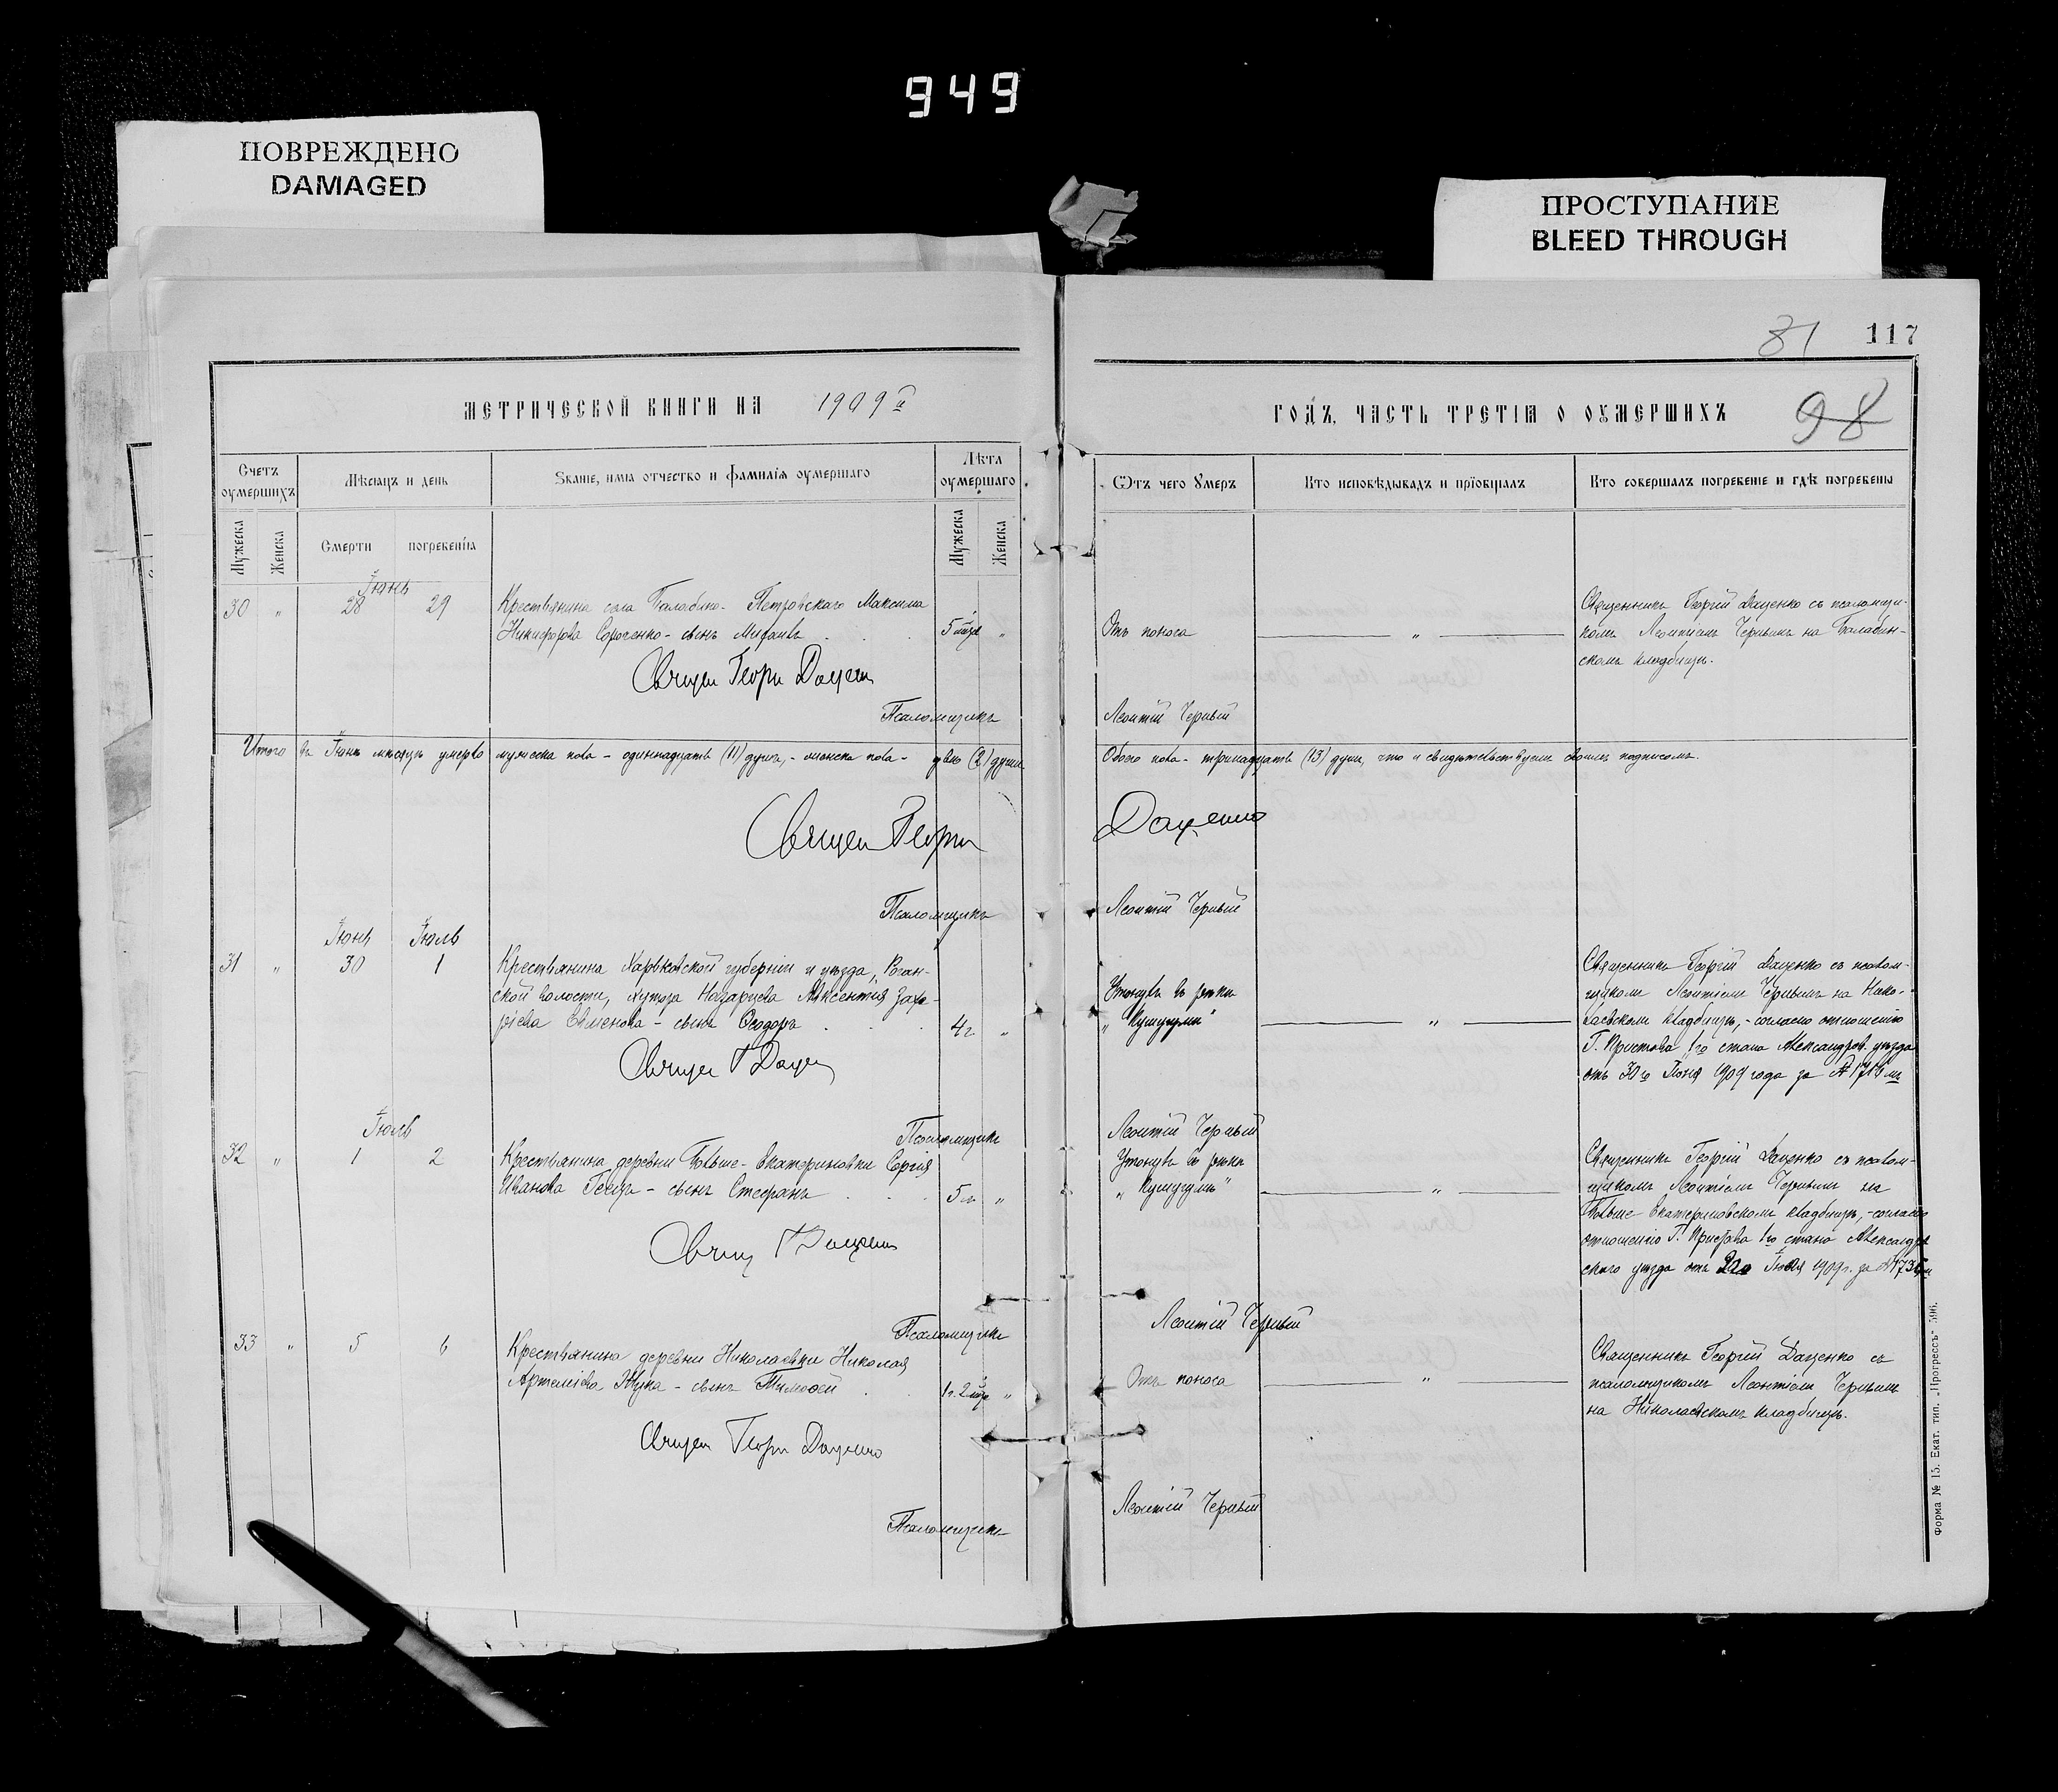 949
ПОВРЕЖДЕНО
DAMAGED
ПРОСТУПАНИЕ
BLEED THROUGH
81 117
МЕТРИЧЕСКОЙ КНИГИ НА 1909й
ГОДЪ, ЧАСТЬ ТРЕТІЯ О ОУМЕРШИХЪ
98
Счетъ оумершихъ
Мѣсяцъ и день
Званіе, имя отчество и фамилія оумершаго
Лѣта оумершаго
Ѿтъ чего умеръ
Кто исповѣдывалъ и пріобщалъ
Кто совершалъ погребеніе и гдѣ погребены
Мужеска
Женска
Смерти
погребенія
Мужеска
Женска
Іюнь
30 " 28 29
Крестьянина села Балабино-Петровскаго Максима
Никифорова Сороченко - сынъ
5 мѣс. "
Отъ поноса
"
Священникъ Георгій Даценко съ псаломщи-
комъ Леонтіемъ Чернымъ на Балабин-
скомъ кладбищѣ.
Священ Георгій Даценко
Псаломщикъ Леонтій Черный
Итого въ Іюнѣ мѣсяцѣ умерло мужеска пола - одиннадцать (11) душъ, - женска пола - двѣ (2) души
Обоего пола - тринадцать (13) душъ, что и свидѣтельствуемъ своимъ подписомъ.
Священ Георгій Даценко
Псаломщикъ Леонтій Черный
Іюнь Іюль
31 " 30 1
Крестьянина Харьковской губерніи и уѣзда, Роган-
ской волости, хутора Назарцева Авксентія Заха-
ріева Евменова - сынъ Ѳеодоръ
4 г. "
Утонулъ въ рѣкѣ
"Кушугумъ"
"
Священникъ Георгій Даценко съ псалом-
щикомъ Леонтіемъ Чернымъ на Нико-
лаевскомъ кладбищѣ, - согласно отношенію
Г. Пристава 1го стана Александров. уѣзда
отъ 30го Іюня 1909 года за №
Священ Г Даценко
Псаломщикъ Леонтій Черный
Іюль
32 " 1 2
Крестьянина деревни Больше-Екатериновки Сергія
Иванова - сынъ Стефанъ
5 л. "
Утонулъ въ рѣкѣ
"Кушугумъ"
"
Священникъ Георгій Даценко съ псалом-
щикомъ Леонтіемъ Чернымъ на
Больше Екатериновскомъ кладбищѣ, - согласно
отношенію Г. Пристава 1го стана Александров
скаго уѣзда отъ Іюля 1909 г. за №
Священ Г Даценко
Псаломщикъ Леонтій Черный
33 " 5 6
Крестьянина деревни Николаевки Николая
Артеміева Жука - сынъ Тимоѳей
1 г. 2 мѣс. "
Отъ поноса
"
Священникъ Георгій Даценко съ
псаломщикомъ Леонтіемъ Чернымъ
на Николаевскомъ кладбищѣ.
Священ Георгій Даценко
Псаломщикъ Леонтій Черный
Форма № 15. Екат. тип. „Прогрессъ" 596.